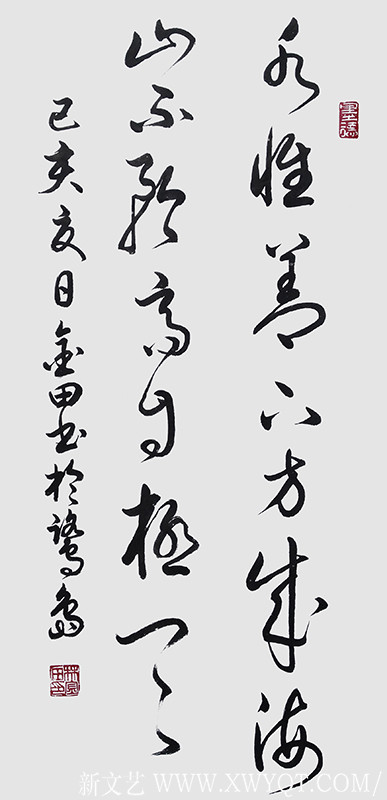 水惟善下方成海
山不矜高自極天
己亥夏日金田书於鷺島
新文艺 WWW.XWYQT.COM/